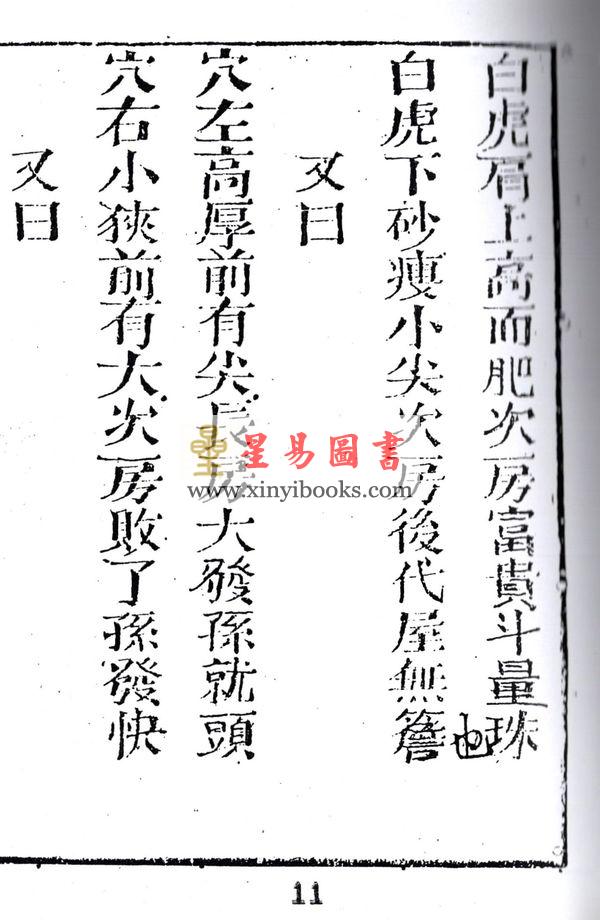 白虎肩上高而肥次房富貴斗量珠
白虎下砂瘦小尖次房後代屋無簷
又曰
穴左高厚前有尖長房大發孫就頭
穴右小狹前有大次房敗了孫發快
又曰
星易圖書
www.xinyibooks.com
11